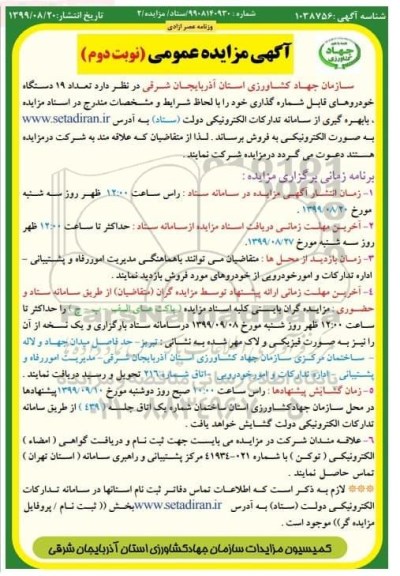 شناسه آگهی :۱۰۳۸۷۵۶
شماره :۹۹۰۸۱۴۰۹۳۰/ستاد/مزایده/۲
تاریخ انتشار:۱۳۹۹/۰۸/۲۰
روزنامه عصر آزادی
جهاد کشاورزی
آگهی مزایده عمومی (نوبت دوم)
سازمان جهاد کشاورزی استان آذربایجان شرقی در نظر دارد تعداد ۱۹ دستگاه
خودروهای قابل شماره گذاری خود را با لحاظ شرایط و مشخصات مندرج در اسناد مزایده
، بابهره گیری از سامانه تدارکات الکترونیکی دولت (ستاد) به آدرس www.setadiran.ir
به صورت الکترونیکی به فروش برساند . لذا از متقاضیان که علاقه مند به شرکت درمزایده
هستند دعوت می گردد درمزایده شرکت نمایند .
برنامه زمانی برگزاری مزایده :
۱- زمان انتشار آگهی مزایده در سامانه ستاد : راس ساعت ۱۲:۰۰ ظهر روز سه شنبه
مورخ ۱۳۹۹/۰۸/۲۰ .
۲- آخرین مهلت زمانی دریافت اسناد مزایده ازسامانه ستاد : حداکثر تا ساعت ۱۲:۰۰ ظهر
روز سه شنبه مورخ ۱۳۹۹/۰۸/۲۷.
۳- زمان بازدید از محل ها : متقاضیان می توانند باهماهنگی مدیریت اموررفاه و پشتیبانی -
اداره تدکارات و امورخودرویی از خودروهای مورد فروش بازدید نمایند .
۴- آخرین مهلت زمانی ارائه پیشنهاد توسط مزایده گران (متقاضیان) از طریق سامانه ستاد و
حضوری : مزایده گران بایستی کلیه اسناد مزایده را حداکثر تا
ساعت ۱۲:۰۰ ظهر روز شنبه مورخ ۱۳۹۹/۰۹/۰۸ در سامانه ستاد بارگزاری و یک نسخه از آن
را نیز به صورت فیزیکی و لاک مهر شده به نشانی : تبریز- حد فاصل میدان جهاد و لاله
- ساختمان مرکزی سازمان جهاد کشاورزی استان آذربایجان شرقی - مدیریت اموررفاه و
پشتیبانی - اداره تدارکات و امورخودرویی -اتاق شماره ۲۱۶ تحویل و رسید دریافت نمایند .
۵- زمان گشایش پیشنهادها : راس ساعت ۱۰:۰۰ صبح روز دوشنبه مورخ ۱۳۹۹/۰۹/۱۰پیشنهادها
در محل سازمان جهادکشاورزی استان ساختمان شماره یک اتاق جلسه (۴۳۹) از طریق سامانه
تدارکات الکترونیکی دولت گشایش خواهد یافت .
۶- علاقه مندان شرکت در مزایده می بایست جهت ثبت نام و دریافت گواهی ( امضاء )
الکترونیکی ( توکن ) با شماره ۰۲۱-۴۱۹۳۴ مرکز پشتیبانی و راهبری سامانه ( استان تهران )
تماس حاصل نمایند .
*** لازم به ذکر است که اطلاعات تماس دفاتر ثبت نام استانها در سامانه تدارکات
الکترونیکی دولت (ستاد) به آدرس www.setadiran.irبخش (( ثبت نام / پروفایل
مزایده گر)) موجود است .
کمیسیون مزایدات سازمان جهادکشاورزی استان آذربایجان شرقی